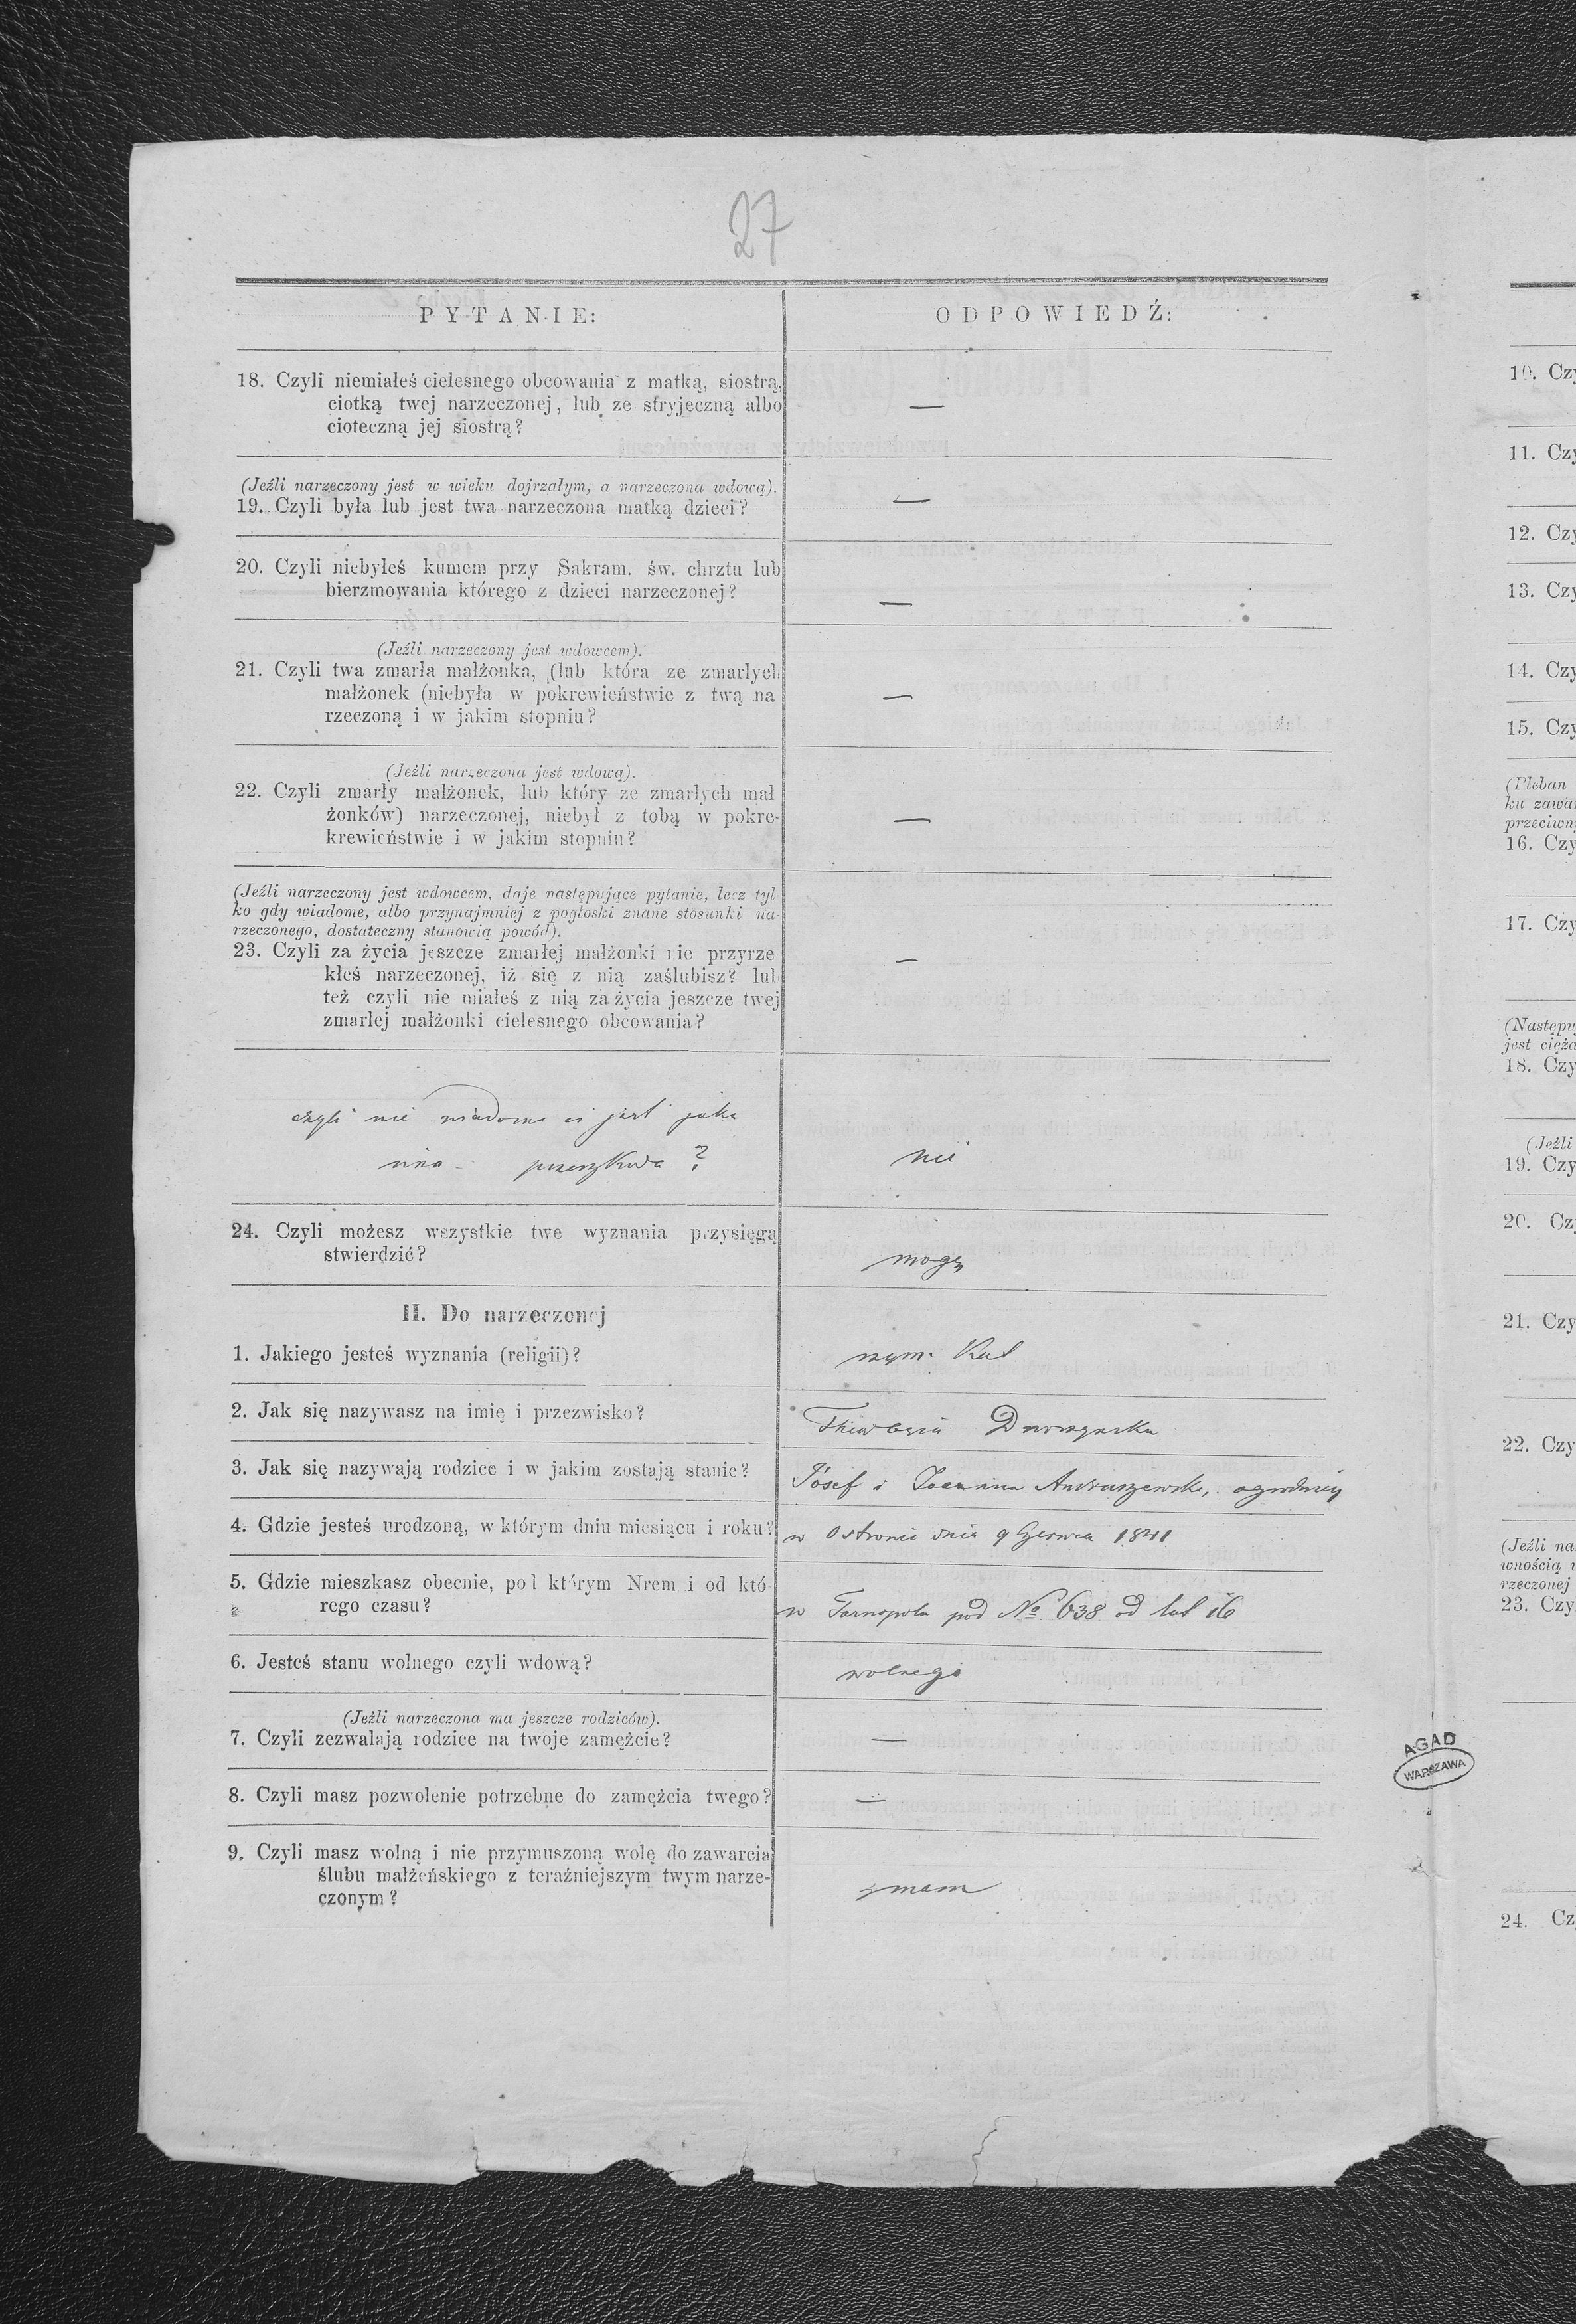 27
PYTANIE:
ODPOWIEDŹ:
18. Czyli niemiałeś cielesnego obcowania z matką, siostrą,
ciotką twej narzeczonej, lub ze stryjeczną albo
cioteczną jej siostrą?
—
(Jeźli narzeczony jest w wieku dojrzałym, a narzeczona wdową).
19. Czyli była lub jest twa narzeczona matką dzieci?
—
20. Czyli niebyłeś kumem przy Sakram. św. chrztu lub
bierzmowania którego z dzieci narzeczonej?
—
(Jeźli narzeczony jest wdowcem).
21. Czyli twa zmarła małżonka, (lub która ze zmarłych
małżonek (niebyła w pokrewieństwie z twą na
rzeczoną i w jakim stopniu?
—
(Jeźli narzeczona jest wdową).
22. Czyli zmarły małżonek, lub który ze zmarłych mał
żonków) narzeczonej, niebył z tobą w pokre-
krewieństwie i w jakim stopniu?
—
(Jeźli narzeczony jest wdowcem, daje następujące pytanie, lecz tyl-
ko gdy wiadome, albo przynajmniej z pogłoski znane stosunki na-
rzeczonego, dostateczny stanowią powód).
23. Czyli za życia jeszcze zmarłej małżonki nie przyrze-
kłeś narzeczonej, iż się z nią zaślubisz? lub
też czyli nie miałeś z nią za życia jeszcze twej
zmarłej małżonki cielesnego obcowania?
—
czyli nie wiadoma ci jest jaka
inna przeszkoda?
nie
24. Czyli możesz wszystkie twe wyznania przysięgą
stwierdzić?
mogę
II. Do narzeczonej
1. Jakiego jesteś wyznania (religii)?
rzym. Kat
2. Jak się nazywasz na imię i przezwisko?
3. Jak się nazywają rodzice i w jakim zostają stanie?
Józef i Joanna Andruszewske, ogrodnicy
4. Gdzie jesteś urodzoną, w którym dniu miesiącu i roku?
w Ostrowie dnia 9 Czerwca 1841
5. Gdzie mieszkasz obecnie, pod którym Nrem i od któ
rego czasu?
w Tarnopolu pod No 638 od lat 16
6. Jesteś stanu wolnego czyli wdową?
wolnego
(Jeźli narzeczona ma jeszcze rodziców).
7. Czyli zezwalają rodzice na twoje zamężcie?
—
8. Czyli masz pozwolenie potrzebne do zamężcia twego?
—
9. Czyli masz wolną i nie przymuszoną wolę do zawarcia
ślubu małżeńskiego z teraźniejszym twym narze-
czonym?
mam
AGAD
WARSZAWA
10. Czy
11. Czy
12. Czy
13. Czy
14. Czy
15. Czy
(Pleban
ku zawar
przeciwn
16. Czy
17. Czy
(Następu
jest cięża
18. Czy
(Jeźli
19. Czy
20. Cz
21. Czy
22. Czy
(Jeźli na
wnością
rzeczonej
23. Czy
24. Cz